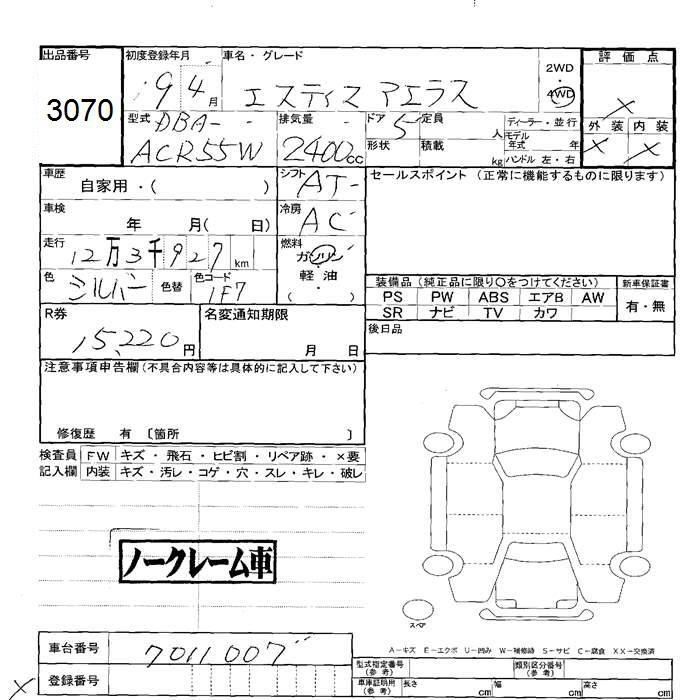 出品番号
3070
初度登録年月
19 4 月
車名・グレード
エスティマ アエラス
2WD
・
4WD
評価点
×
外装 内装
× ×
型式
DBA-
ACR55W
排気量
2400cc
ドア 5
定員 人
形状
積載 kg
ディーラー・並行
モデル年式 年
ハンドル 左・右
車歴
自家用・( )
シフト AT
冷房 AC
セールスポイント (正常に機能するものに限ります)
車検
年 月( 日)
走行
12万3千927km
燃料
ガソリン
軽油
( ・ )
色
シルバー
色替
色コード
1F7
装備品 (純正品に限り〇をつけてください)
PS PW ABS エアB AW
SR ナビ TV カワ
新車保証書
有・無
後日品
R券
15,220円
名変通知期限
月 日
注意事項申告欄(不具合内容等は具体的に記入して下さい)
修復歴 有 〔箇所 〕
検査員記入欄
FW キズ・飛石・ヒビ割・リペア跡・×要
内装 キズ・汚レ・コゲ・穴・スレ・キレ・破レ
ノークレーム車
スペア
A-キズ E-エクボ U-凹み W-補修跡 S-サビ C-腐食 XX-交換済
車台番号
7011007
登録番号
×
型式指定番号(参考)
類別区分番号(参考)
車庫証明用(参考)
長さ cm
幅 cm
高さ cm